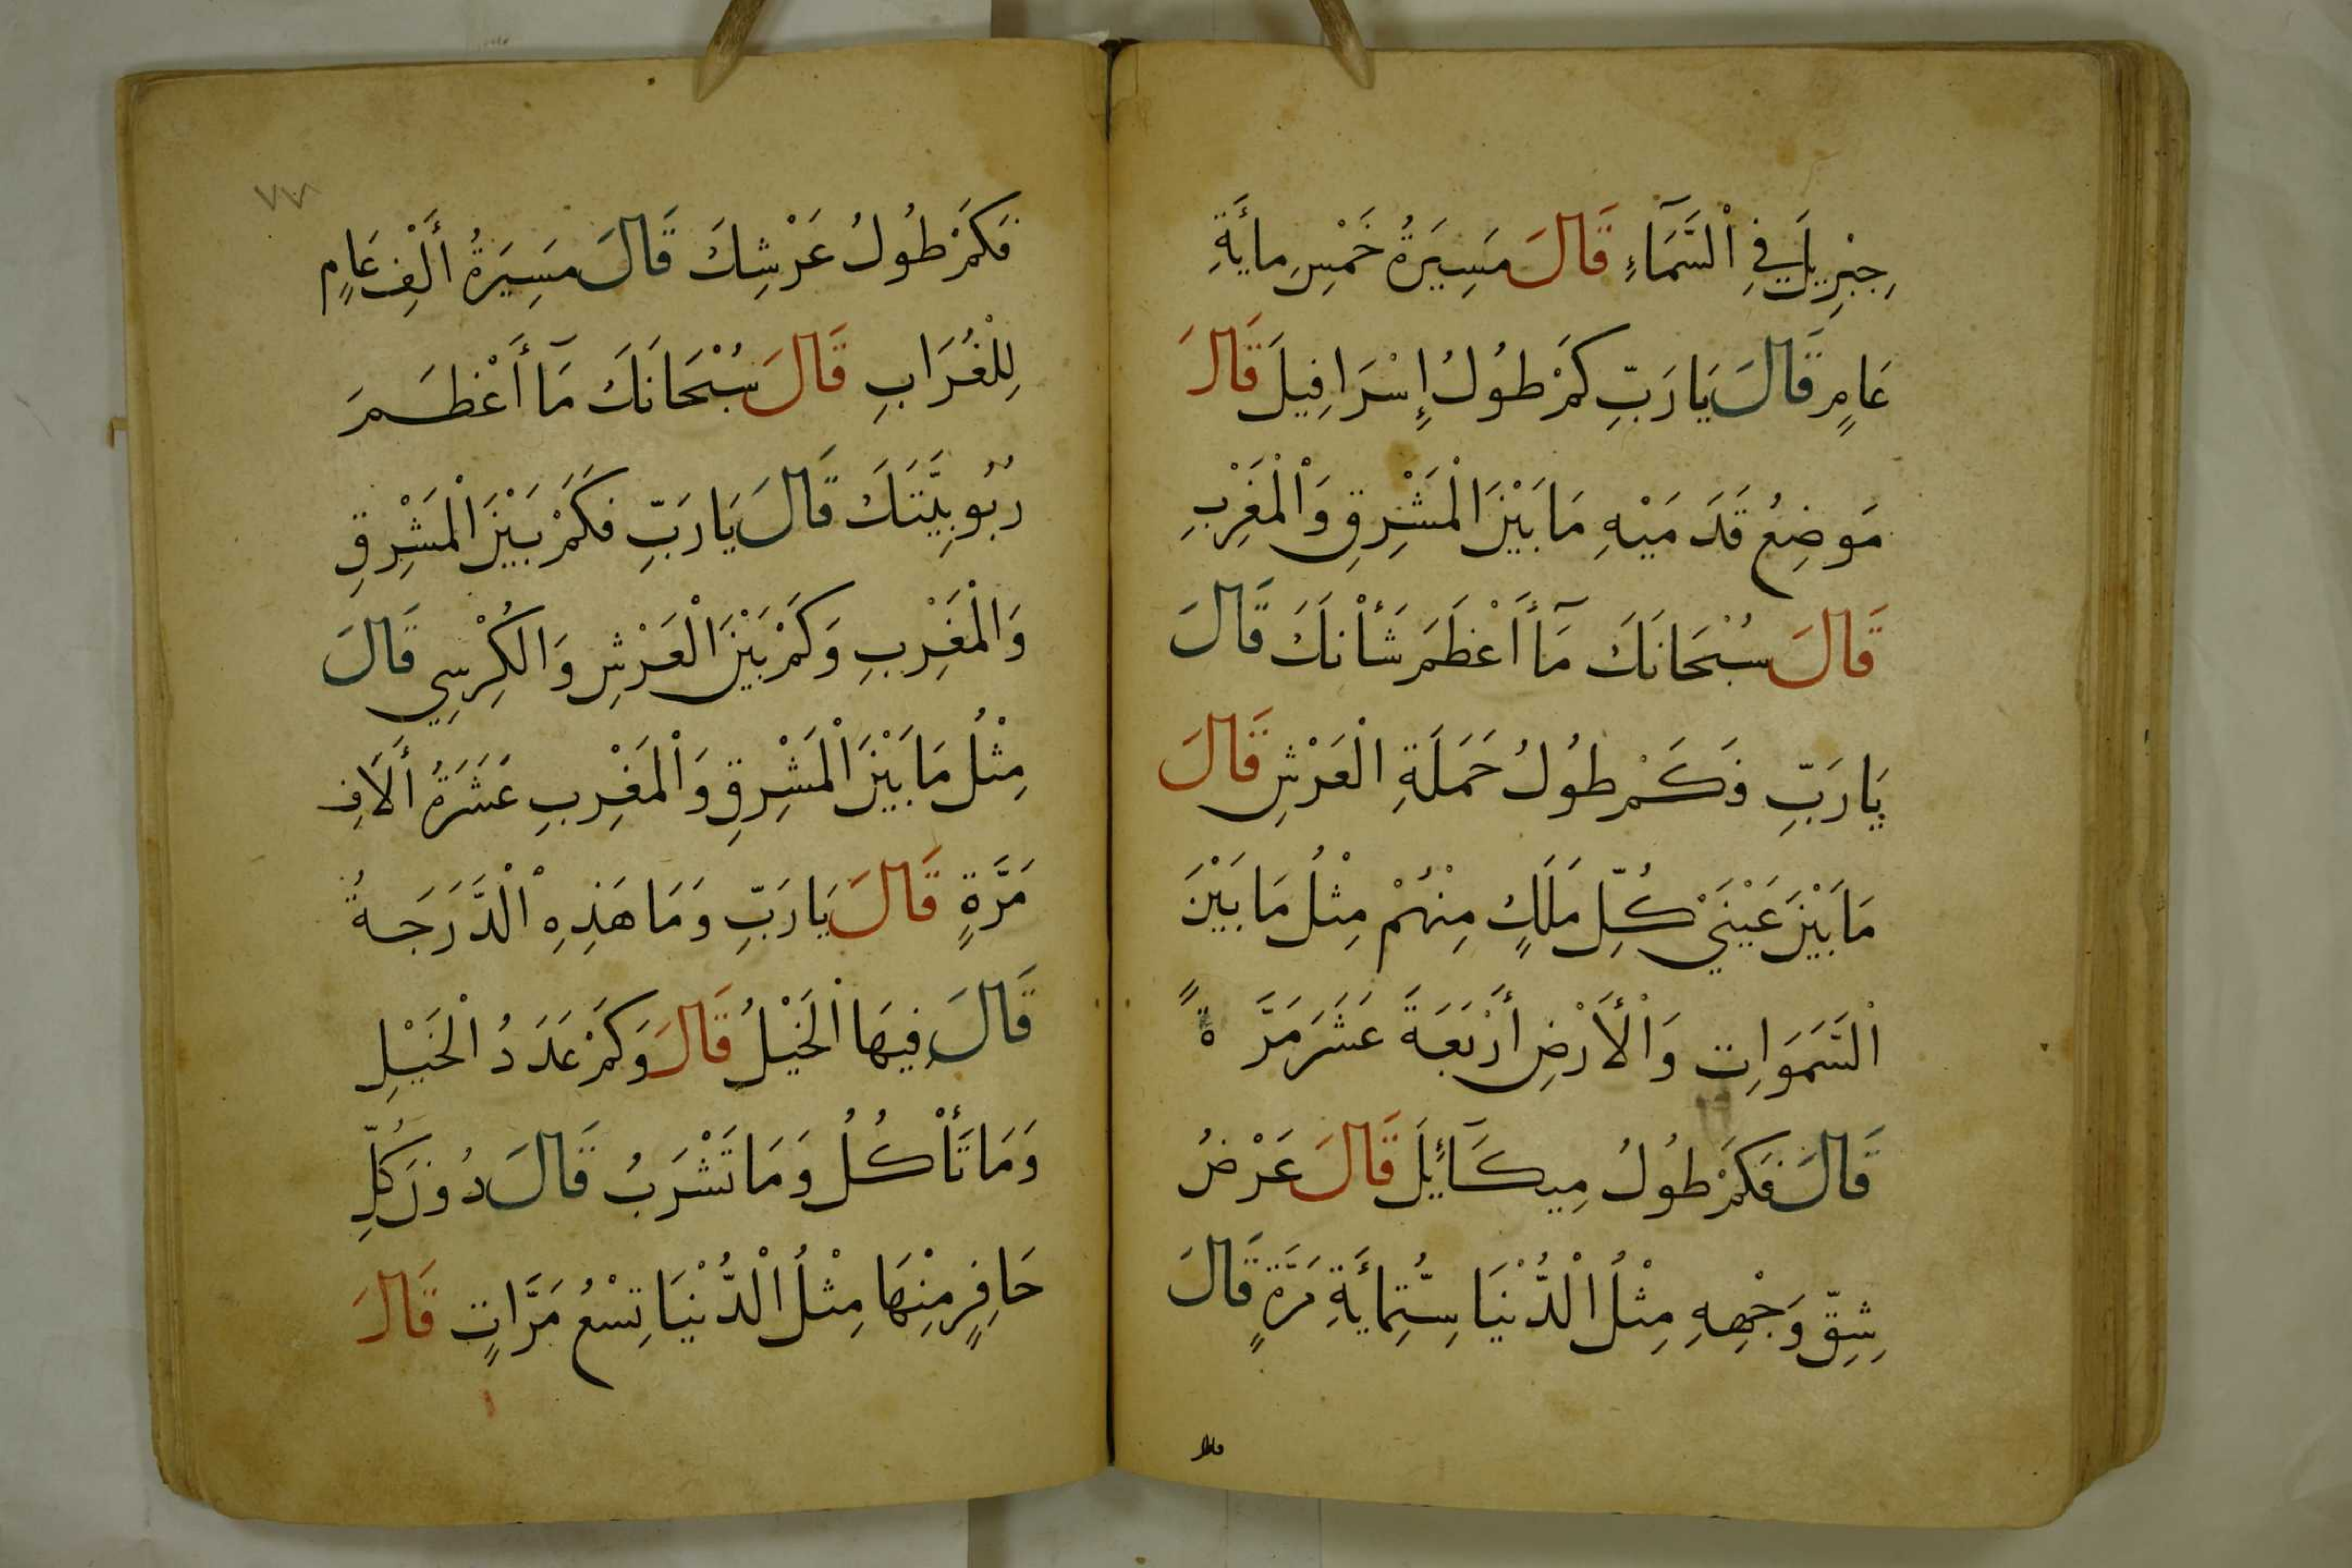 جِبْرِيلَ فِي اْلسَّمَآءِ قَالَ مَسِيَرةُ خَمْسِ مائَةِ
عَامٍ قَالَ يَا رَبِّ كَمْ طُولُ إِسْرَافِيلَ قَالَ
مَوضِعُ قَدَمَيْهِ مَا بَيْنَ الْمَشْرِقِ وَاْلْمَغْرِبِ
قَالَ سُبْحَانَكَ مَآ أَعْظَمَ شَأْنَكَ قَالَ
يَا رَبِّ فَكَمْ طُولُ حَمَلَةِ الْعَرْشِ قَالَ
مَا بَيْنَ عَيْنَيْ كُلِّ مَلَكٍ مِنْهُمْ مِثْلُ مَا بَيْنَ
اْلسَّمَوَاتِ وَاْلأَرْضِ أَرْبَعَةَ عَشَرَ مَرَّةً
قَالَ فَكَمْ طُولُ مِيكَآئِلَ قَالَ عَرْضُ
شِقِّ وَجْهِهِ مِثْلُ اْلدُّنْيَا سِتُّمِائَةِ مَرَّةٍ قَالَ
فَكَمْ طُولُ عَرْشِكَ قَالَ مَسِيَرةُ أَلْفِ عَامٍ
لِلْغُرَابِ قَالَ سُبْحَانَكَ مَآ أَعْظَمَ
رُبُوبِيَّتَكَ قَالَ يَا رَبِّ فَكَمْ بَيْنَ اْلْمَشْرِقِ
وَالْمَغْرِبِ وَكَمْ بَيْنَ الْعَرْشِ وَالْكُرْسِي قَالَ
مِثْلُ مَا بَيْنَ اْلْمَشْرِقِ وَاْلْمَغْرِبِ عَشَرَةُ أَلَافِ
مَرَّةٍ قَالَ يَا رَبِّ وَمَا هَذِهِ اْلْدَّرَجَةُ
قَالَ فِيهَا اْلْخَيْلُ قَالَ وَكَمْ عَدَدُ اْلْخَيْلِ
وَمَا تَأْكُلُ وَمَا تَشْرَبُ قَالَ دُونَ كُلِّ
حَافِرٍ مِنْهَا مِثْلُ اْلْدُّنْيَا تِسْعُ مَرَّاتٍ قَالَ